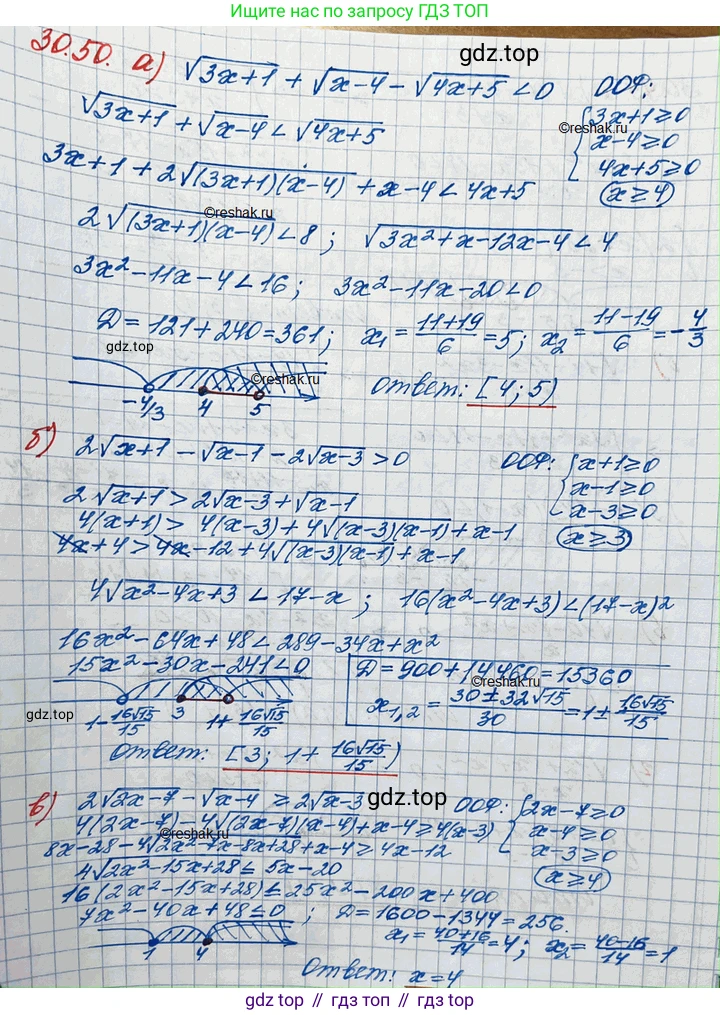 Ищите нас по запросу ГДЗ ТОП
30.50. а) √3x+1 + √x-4 - √4x+5 < 0 ООФ:
gdz.top
√3x+1 + √x-4 < √4x+5 { 3x+1 ≥ 0
©reshak.ru
x-4 ≥ 0
3x+1 + 2√(3x+1)(x-4) + x-4 < 4x+5 4x+5 ≥ 0
(x ≥ 4)
©reshak.ru
2√(3x+1)(x-4) < 8 ; √3x²+x-12x-4 < 4
3x²-11x-4 < 16 ; 3x²-11x-20 < 0
Д = 121+240 = 361 ; x₁ = (11+19)/6 = 5 ; x₂ = (11-19)/6 = -4/3
gdz.top
©reshak.ru
-4/3 4 5 Ответ: [4; 5)
б) 2√x+1 - √x-1 - 2√x-3 > 0 ООФ: { x+1 ≥ 0
x-1 ≥ 0
2√x+1 > 2√x-3 + √x-1 x-3 ≥ 0
4(x+1) > 4(x-3) + 4√(x-3)(x-1) + x-1 (x ≥ 3)
4x+4 > 4x-12 + 4√(x-3)(x-1) + x-1
4√x²-4x+3 < 17-x ; 16(x²-4x+3) < (17-x)²
16x²-64x+48 < 289-34x+x²
15x²-30x-241 < 0 Д = 900+14460 = 15360
©reshak.ru
x₁,₂ = (30±32√15)/30 = 1 ± 16√15/15
gdz.top
1-16√15/15 3 1+16√15/15
Ответ: [3; 1+16√15/15)
в) 2√2x-7 - √x-4 ≥ 2√x-3 ООФ: { 2x-7 ≥ 0
gdz.top
4(2x-7) - 4√(2x-7)(x-4) + x-4 ≥ 4(x-3) x-4 ≥ 0
©reshak.ru
8x-28-4√2x²-7x-8x+28 + x-4 ≥ 4x-12 x-3 ≥ 0
4√2x²-15x+28 ≤ 5x-20 (x ≥ 4)
16(2x²-15x+28) ≤ 25x²-200x+400
7x²-40x+48 ≤ 0 ; Д = 1600-1344 = 256.
x₁ = (40+16)/14 = 4 ; x₂ = (40-16)/14 = 1
1 4
Ответ: x=4
gdz.top // гдз.топ // gdz.top